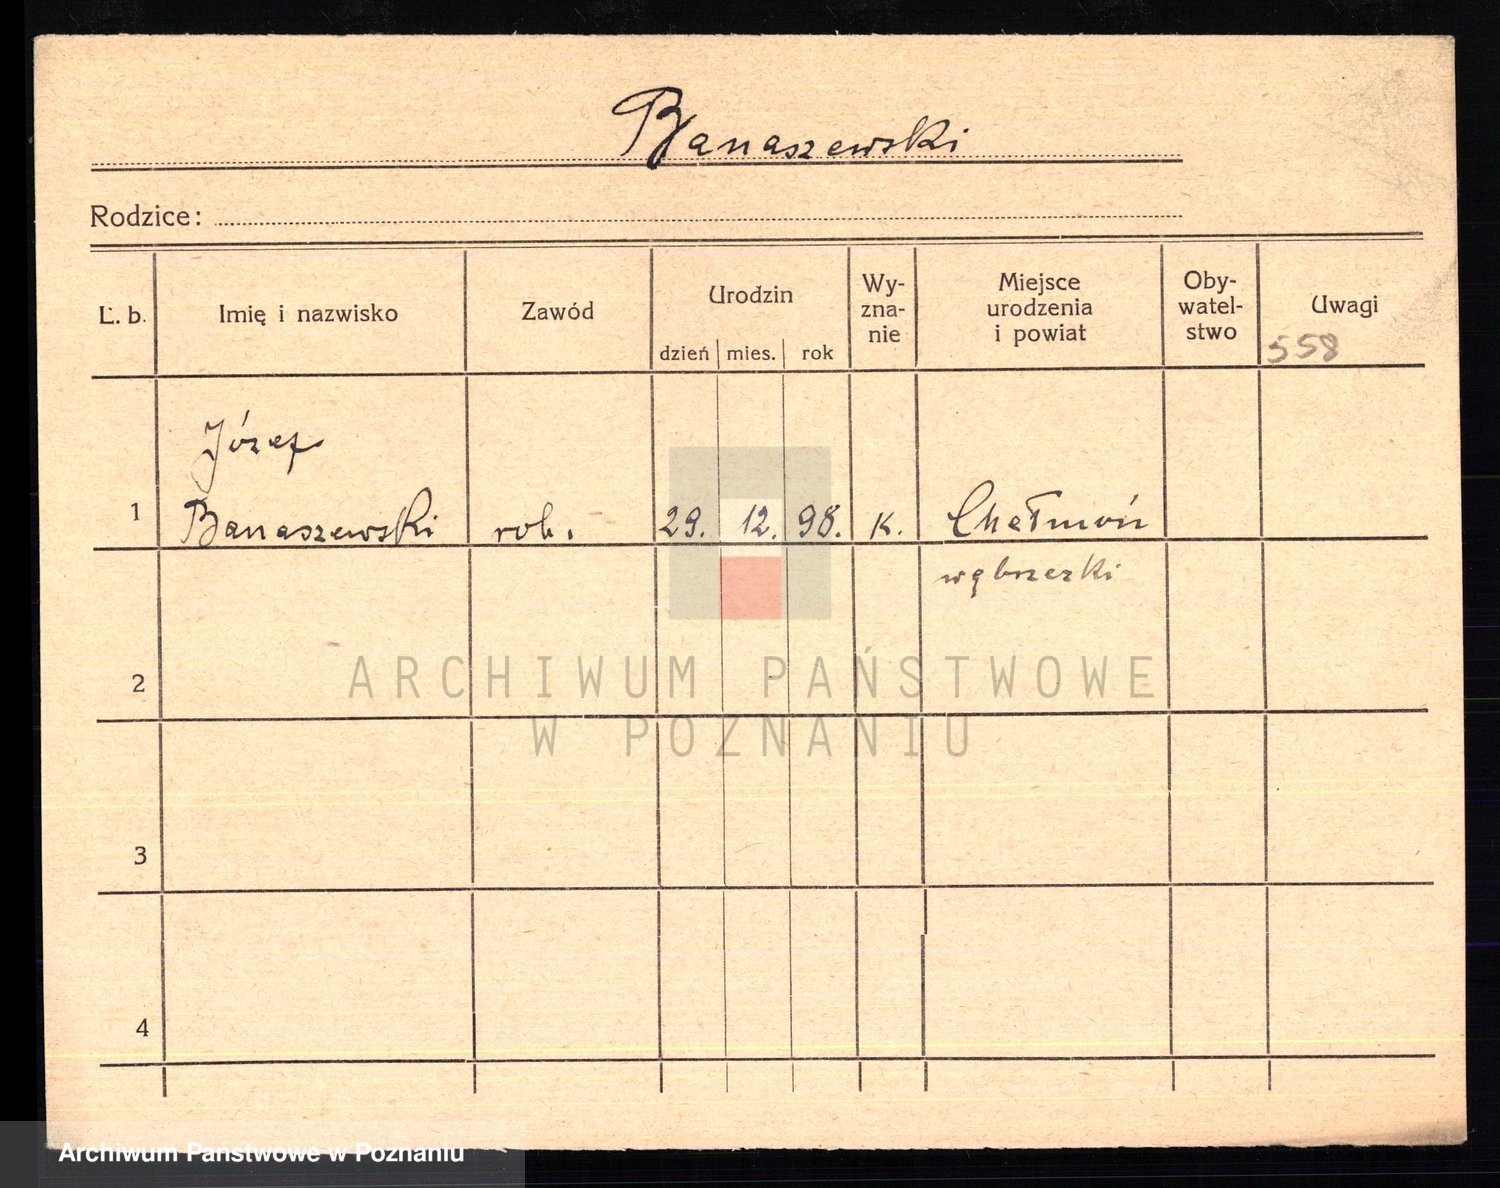 Banaszewski
Rodzice:
L. b.
Imię i nazwisko
Zawód
Urodzin
dzień mies. rok
Wy-
zna-
nie
Miejsce
urodzenia
i powiat
Oby-
watel-
stwo
Uwagi
558
Józef
1 Banaszewski rob. 29. 12. 98. K. Chełmoń
wąbrzezki
2
3
4
ARCHIWUM PAŃSTWOWE
W POZNANIU
Archiwum Państwowe w Poznaniu